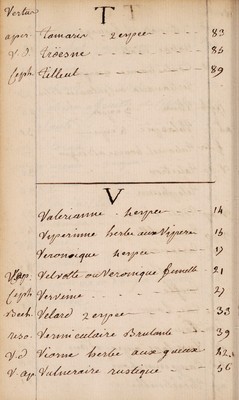 Vertus
T
aper. Tamaris 2 espece 83
v.d. Troesne 86
Ceph Tilleul 89
V
Valerianne herpce 14
Viperinne herbe aux Vipere 16
Veronique herpce 17
Velvotte ou Veronique femelle 21
Ceph Verveine 27
Bech. Velard 2 espce 33
reso. Vermiculaire Brulante 39
v.d Viorne herbe aux gueux 42
v. ap Vulneraire rustique 56